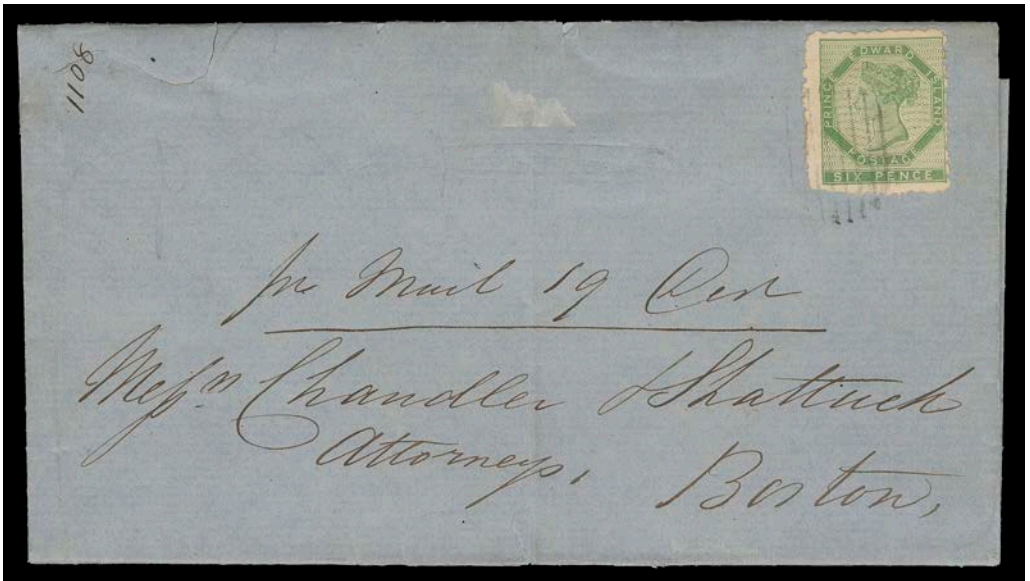 1108
PRINC DWARD ISLAND
POSTAGE
SIX PENCE
Mail 19
Messrs Chandler & Shattuck
Attorneys,
Boston,